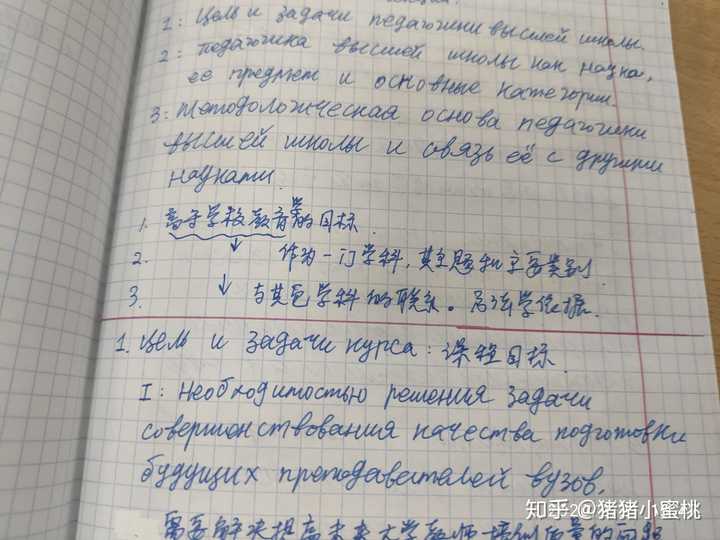 1: Цель и задачи педагогики высшей школы.
2: педагогика высшей школы как наука,
её предмет и основные категории.
3: методологическая основа педагогики
высшей школы и связь её с другими
науками.
1. 高等学校教育学的目标
2. 作为一门学科,其主题和主要类别.
3. 与其它学科的联系。方法学依据.
1. Цель и задачи курса: 课程目标.
I: Необходимостью решения задачи
совершенствования качества подготовки
будущих преподавателей вузов,
需要解决提高未来大学教师培训质量的问题
知乎 @猪猪小蜜桃